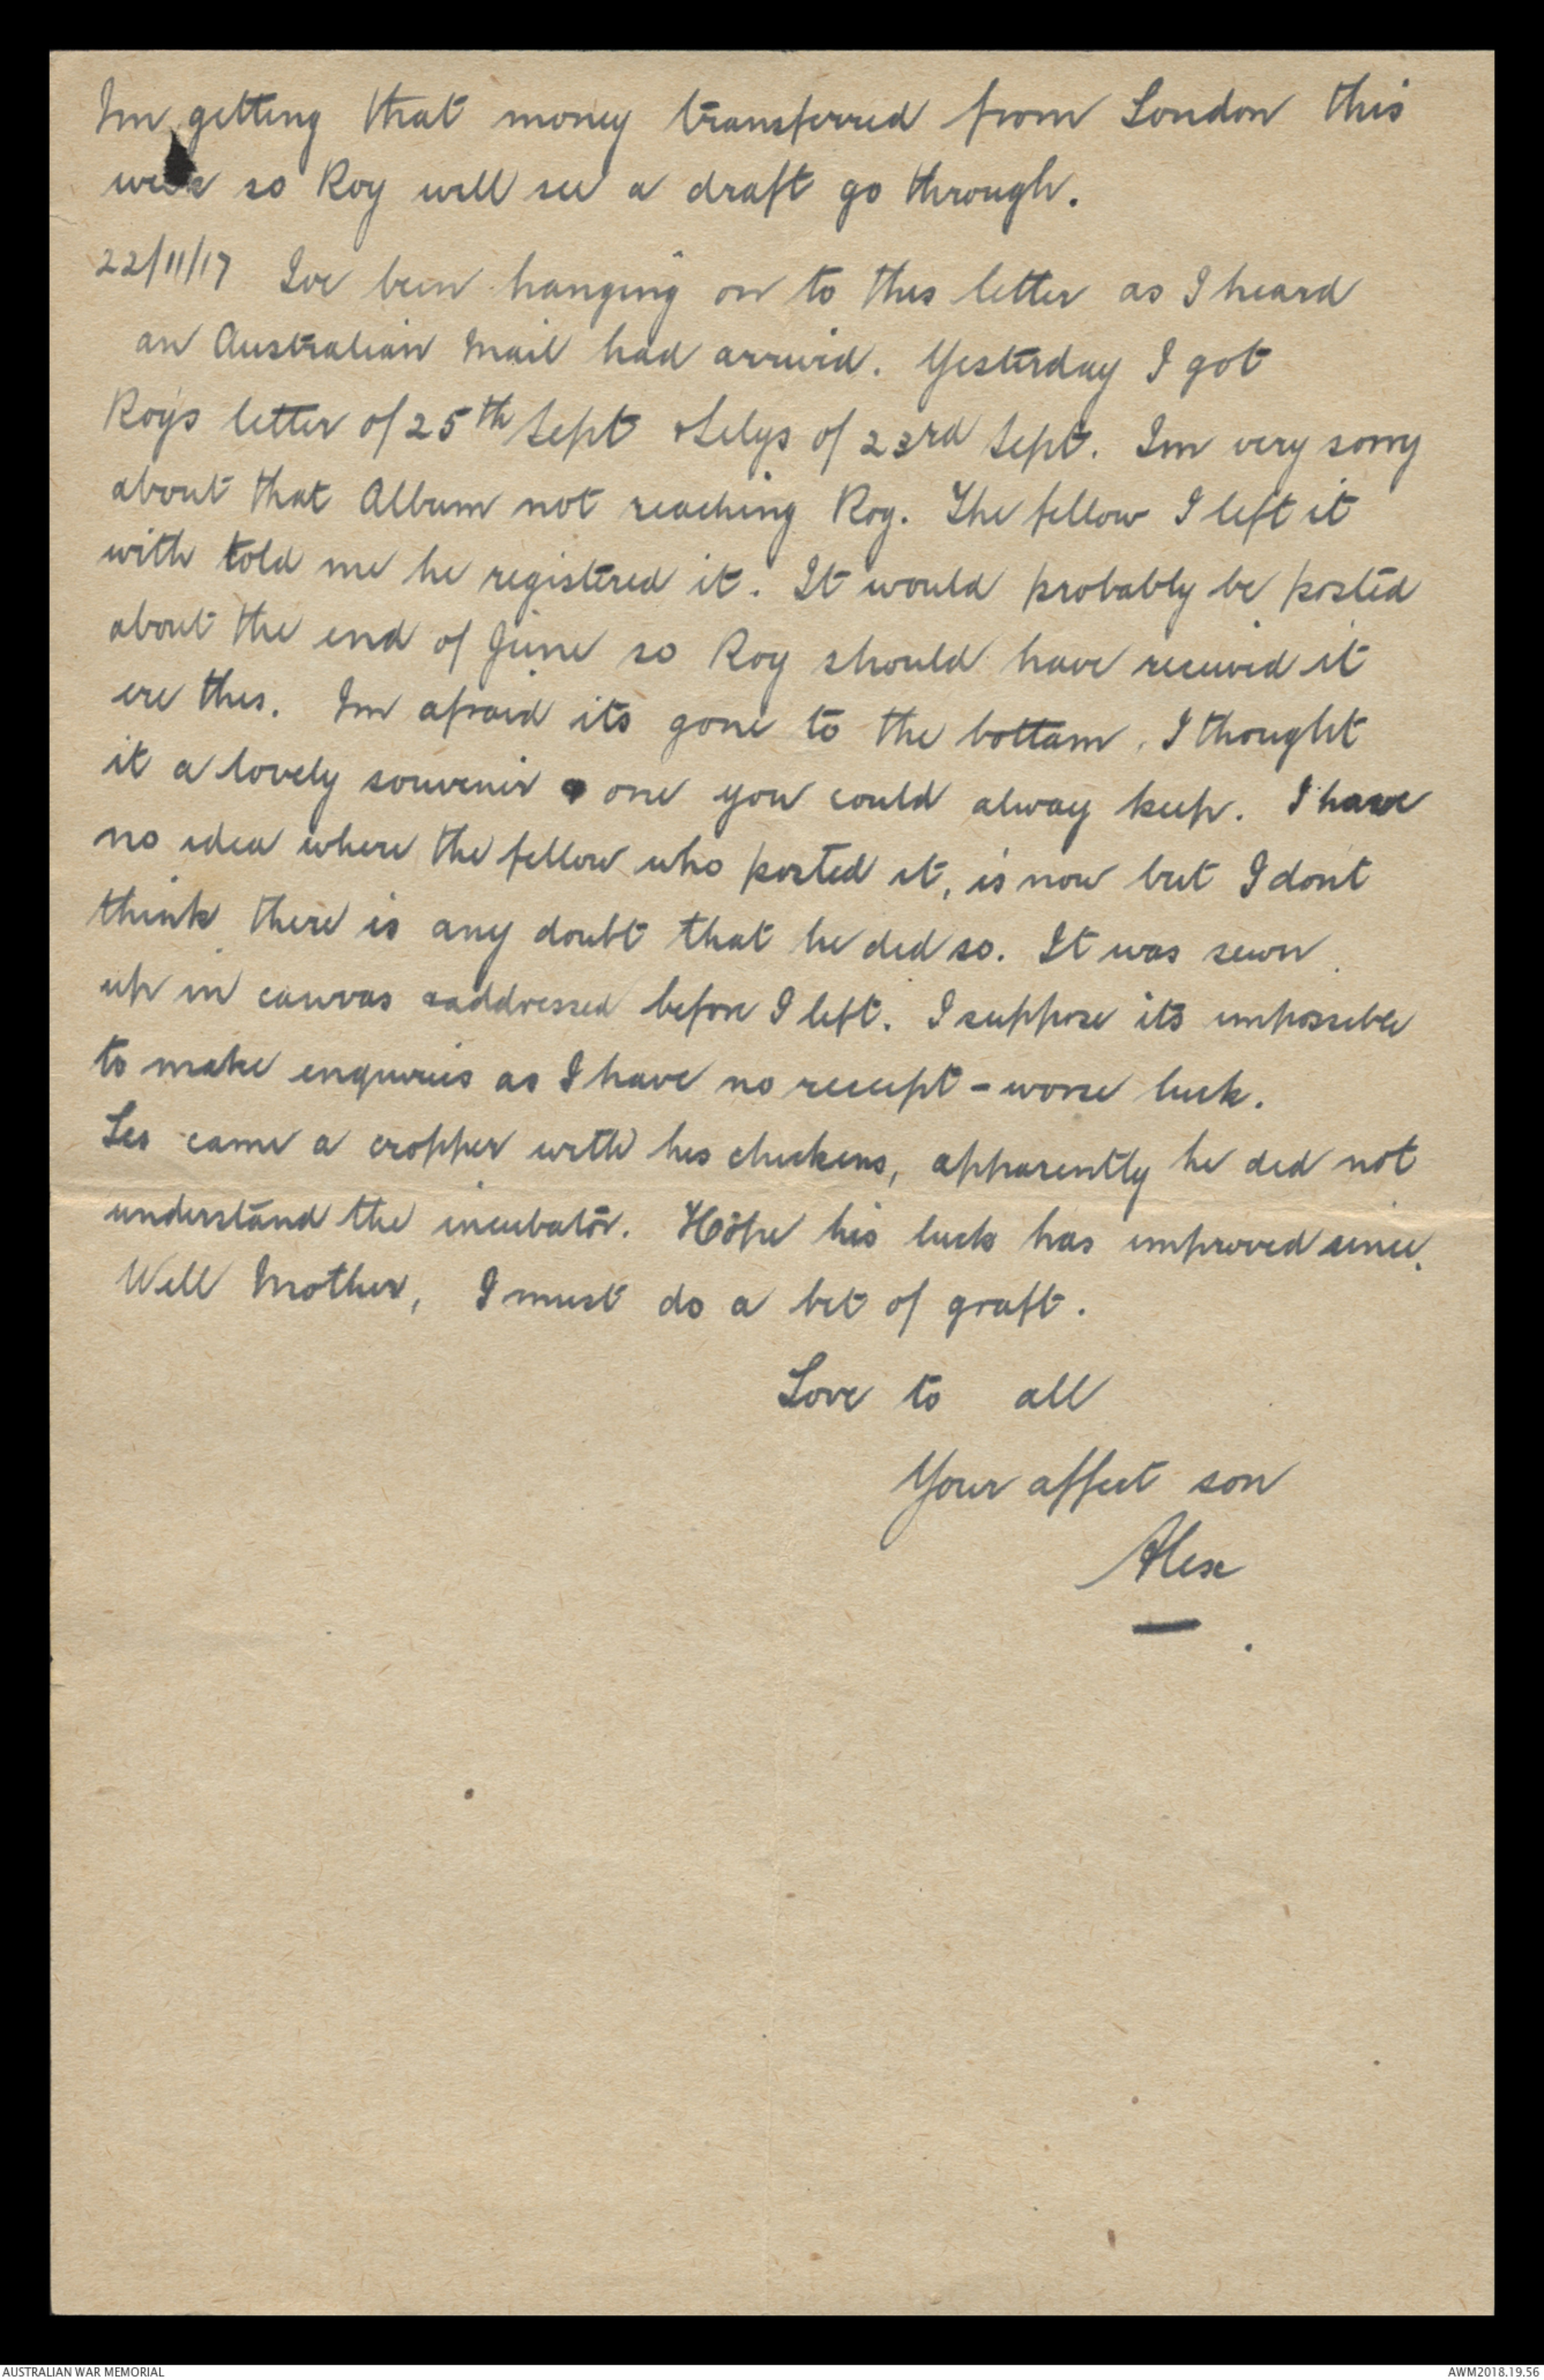 Im getting that money transferred from London this
week so Roy will see a draft go through.
22/11/17 Ive been hanging on to this letter as I heard
an Australian Mail had arrived. Yesterday I got
Roy's letter of 25th Sept & Lilys of 23rd Sept. Im very sorry
about that Album not reaching Roy. The fellow I left it
with told me he registered it. It would probably be posted
about the end of June so Roy should have received it
ere this. Im afraid its gone to the bottam. I thought
it a lovely souvenir & one you could alway keep. I have
no idea where the fellow who posted it, is now but I dont
think there is any doubt that he did so. It was sewn
up in canvas & addressed before I left. I suppose its impossible
to make enquiries as I have no receipt - worse luck.
Les came a cropper with his chickens, apparently he did not
understand the incubator. Hope his luck has improved since.
Well Mother, I must do a bit of graft.
Love to all
Your affect son
Alex
AUSTRALIAN WAR MEMORIAL
AWM2018.19.56